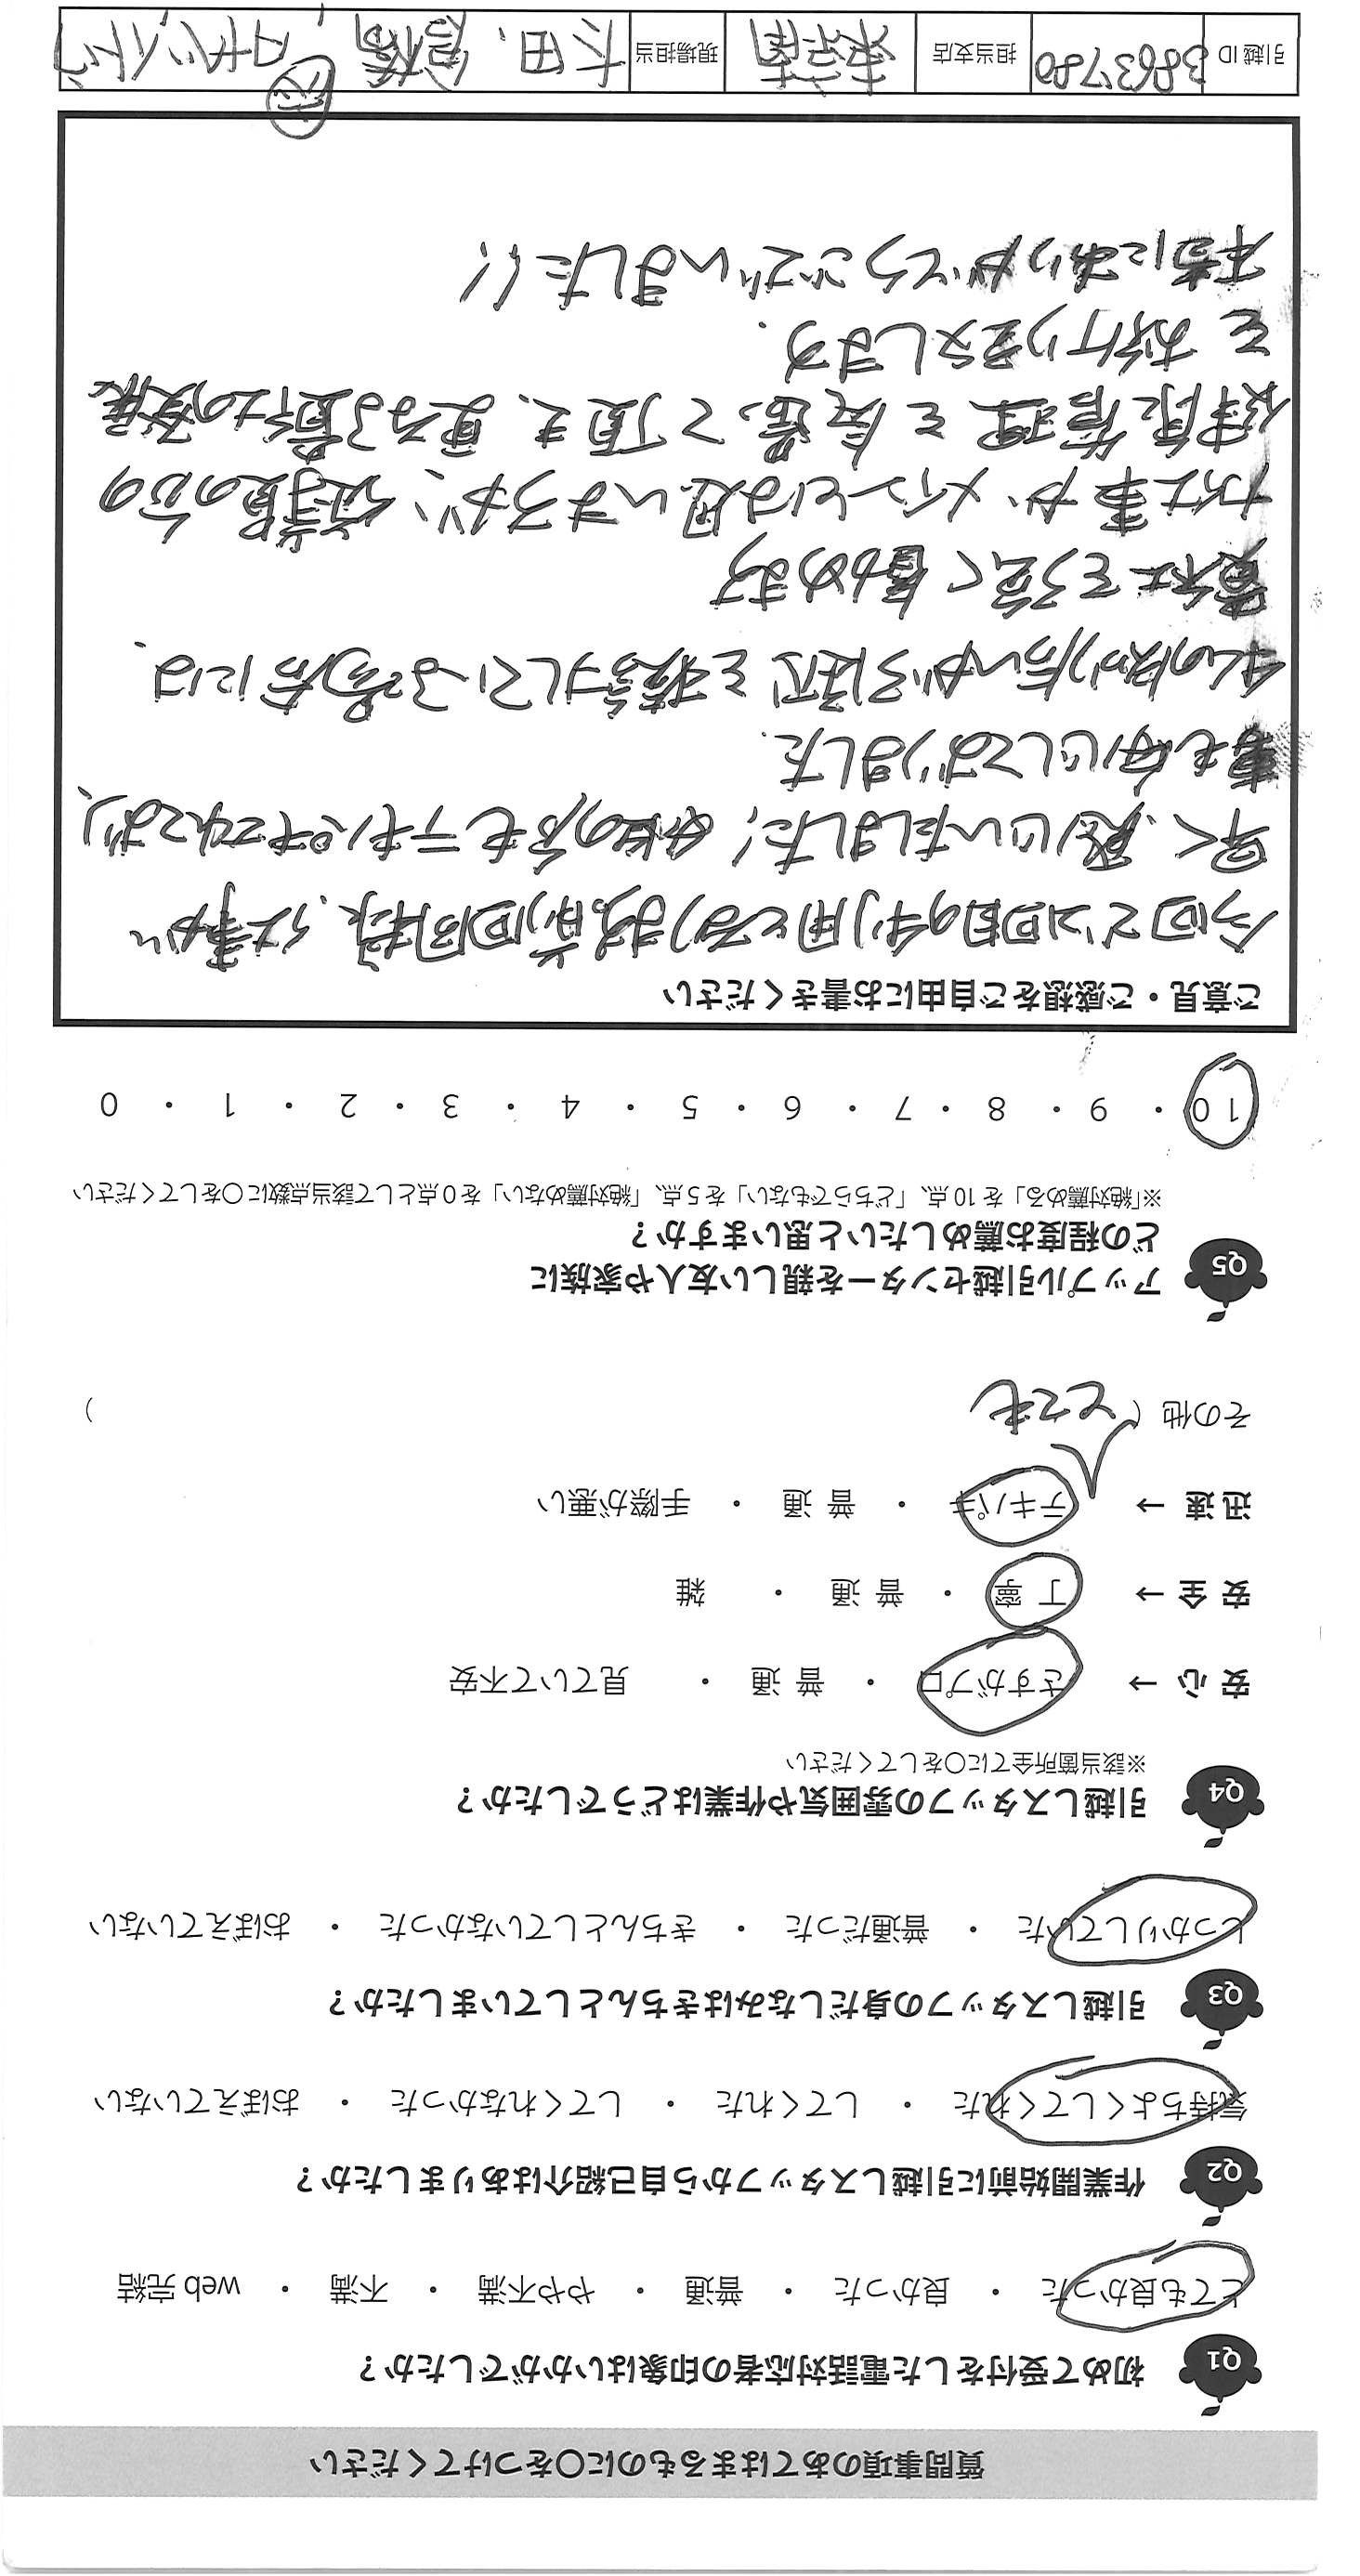 質問事項のあてはまるものに○をつけてください
Q1 初めて受付をした電話対応者の印象はいかがでしたか？
とても良かった ・ 良かった ・ 普通 ・ やや不満 ・ 不満 ・ web 完結
Q2 作業開始前に引越しスタッフから自己紹介はありましたか？
気持ちよくしてくれた ・ してくれた ・ してくれなかった ・ おぼえていない
Q3 引越しスタッフの身だしなみはきちんとしていましたか？
しっかりしていた ・ 普通だった ・ きちんとしていなかった ・ おぼえていない
Q4 引越しスタッフの雰囲気や作業はどうでしたか？
※該当箇所全てに○をしてください
安 心 → さすがプロ ・ 普 通 ・ 見ていて不安
安 全 → 丁 寧 ・ 普 通 ・ 雑
迅 速 → テキパキ ・ 普 通 ・ 手際が悪い
その他 （ とても ）
Q5 アップル引越センターを親しい友人や家族に
どの程度お薦めしたいと思いますか？
※「絶対薦める」を 10 点、「どちらでもない」を 5 点、「絶対薦めない」を 0 点として該当点数に○をしてください
10 ・ 9 ・ 8 ・ 7 ・ 6 ・ 5 ・ 4 ・ 3 ・ 2 ・ 1 ・ 0
ご意見・ご感想をご自由にお書きください
今回で2回目の利用となります。前回同様、仕事が
早く、感心いたしました! 女性の方もテキパキされており、
事も安心しておりました.
私の周りの方が引越を検討している場合には、
貴社を強く勧めます
力仕事がメインとは思いますが、従業員の方の
健康管理を反省して頂き、更なる貴社の発展
をお祈り致します.
本当にありがとうございました!!
引越 ID 3863780 担当支店 東京南 現場担当 太田、高橋、